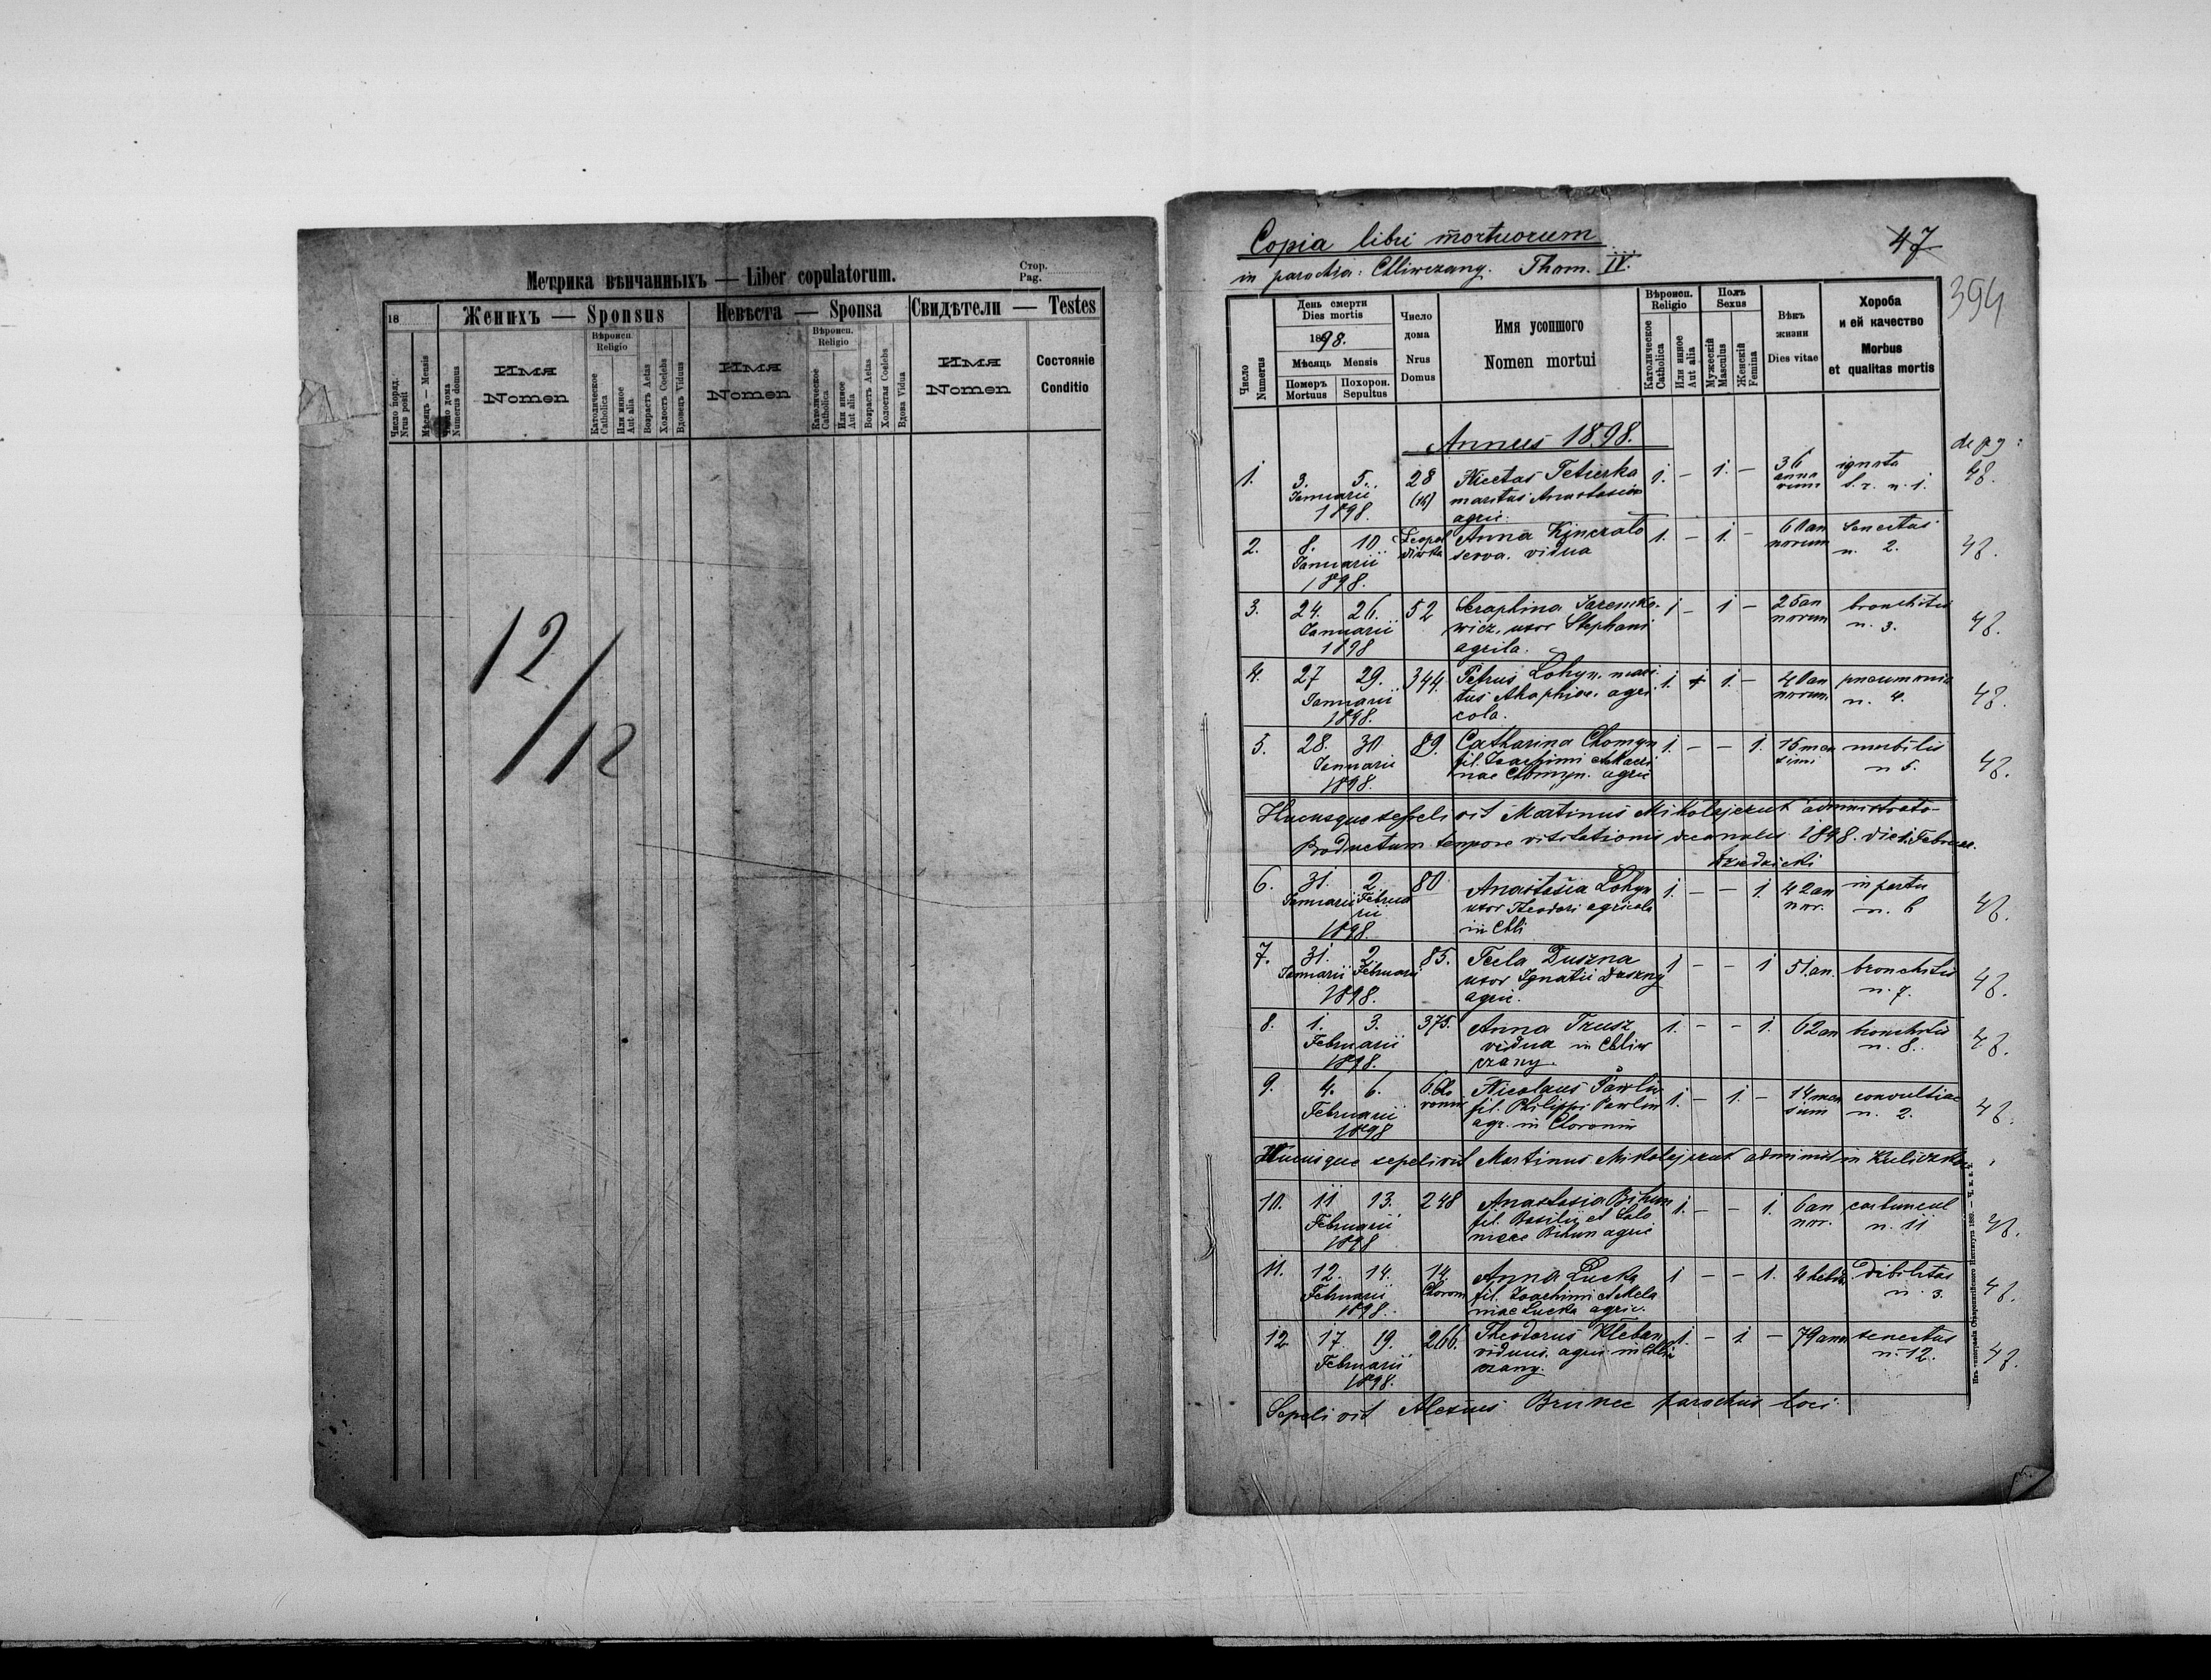 Метрика вѣнчанныхъ — Liber copulatorum.
Стор.
Pag.
18
Женихъ — Sponsus
Невѣста — Sponsa
Свидѣтели — Testes
Число поряд.
Nrus posit
Мѣсяцъ — Mensis
Число дома
Numerus domus
Имя
Nomen
Вѣроисп.
Religio
Католическое
Catholica
Или иное
Aut alia
Возрастъ Aetas
Холостъ Coelebs
Вдовецъ Viduus
Имя
Nomen
Вѣроисп.
Religio
Католическое
Catholica
Или иное
Aut alia
Возрастъ Aetas
Холостая Coelebs
Вдова Vidua
Имя
Nomen
Состояніе
Conditio
12/12
Copia libri mortuorum
47
in parochia: Chliwczany. Thom. IV.
394
Число
Numerus
День смерти
Dies mortis
1898.
Мѣсяць Mensis
Померъ
Mortuus
Похорон.
Sepultus
Число
дома
Nrus
Domus
Имя усопшого
Nomen mortui
Вѣроисп.
Religio
Католическое
Catholica
Или иное
Aut alia
Полъ
Sexus
Мужескій
Masculus
Женскій
Femina
Вѣкъ
жизни
Dies vitae
Хороба
и ей качество
Morbus
et qualitas mortis
Annus 1898.
1. 3. 5. 28 Nicetas 1. — 1. — 36 ignota
Januarii (16) maritus Anastasiae annorum n. 1. 48.
1898. agric.
2. 8. 10 Anna 1. — 1. — 60 an senectus
Januarii serva. vidua norum n. 2. 48.
1898.
3. 24. 26. 52 Seraphina 1 — 1 — 25 an bronchitis
Januarii wicz, uxor Stephani norum n. 3. 48.
1898 agrila.
4. 27 29. 344. Petrus Lohyn, mari 1. + 1. — 40 an pneumonia
Januarii tus Ahaphiae agri norum n. 4. 48.
1898. cola.
5. 28. 30 89. Catharina Chomyn 1. — — 1. 15 men morbilis
Januarii fil. Joachimi et Macri n 5. 48.
1898. nae Chomyn. agric
Hucusque sepelivit Martinus Mikolejczuk administrato-
Productum tempore visitationis decanalis 1898. die 1. Februar.
6. 31. 2. 80 Anastasia Lohyn 1. — — 1 42 an in partu
Januarii Februa uxor Theodori agricola nor. n. 6 48.
rii in Chli
1898.
7. 31. 2. 85. Tecla Duszna 1 — — 1 51 an. bronchitis
Januarii Februarii uxor Ignatii Duszny n. 7. 48.
1898. agric.
8. 1. 3. 375. Anna Trusz 1. — — 1. 62 an bronchitis
Februarii vidua in Chliw n. 8. 48.
1898. czany.
9. 4. 6. 6. Cho Nicolaus Pawliw 1. — 1. — 14 men convulsiae
Februarii roniw fil. Philippi Pawliw sium n. 2. 48.
1898 agr. in Choroniw
Hucusque sepelivit Martinus Mikolejczuk administ in
10. 11 13. 248 Anastasia Bihun 1. — — 1. 6 an carbuncul
Februarii fil. Basilii et Salo nor. n. 11 48.
1898 meae Bihun agric
11. 12. 14. 14. Anna Lucka 1 — — 1. 4 hebd. dibilitas
Februarii Choron fil. Joachimi et Mela n. 3. 48.
1898. niae Lucka agric.
12 17. 19. 266. Theodorus Kleban 1. — 1 — 79 ann senectus
Februarii viduus. agric in Chliw n. 12. 48.
1898. czany.
Sepelivit Alexius parochus loci
Изъ типографіи Ставропигійского Института 1889.